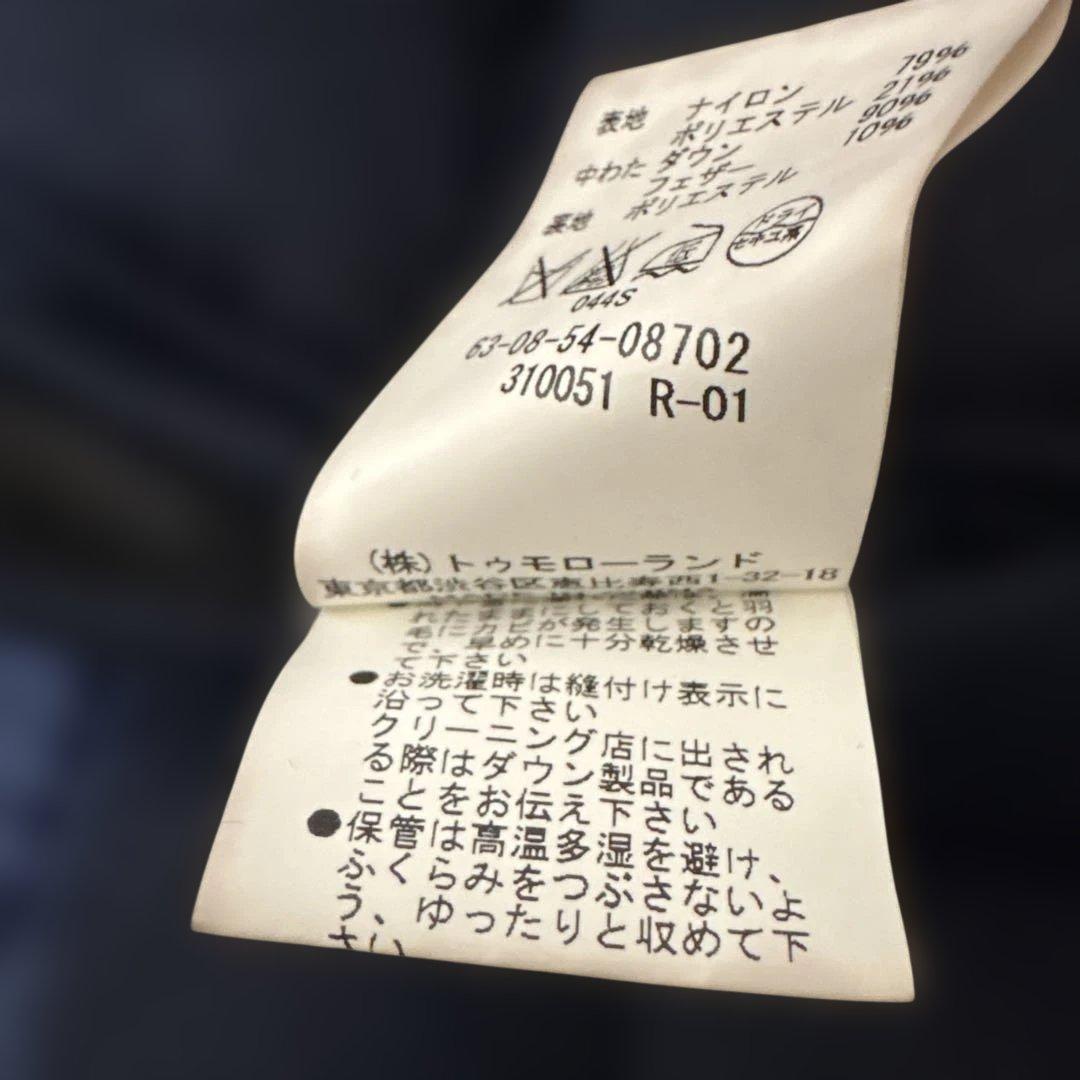 表地 ナイロン 79%
ポリエステル 21%
中わた ダウン 90%
フェザー 10%
裏地 ポリエステル
ドライ
セキユ系
044S
63-08-54-08702
310051 R-01
(株)トゥモローランド
東京都渋谷区恵比寿西1-32-18
毛にカビが発生しますの
で、早めに十分乾燥させ
て下さい
●お洗濯時は縫付け表示に
沿って下さい
クリーニング店に出される際はダウン製品である
ことをお伝え下さい
●保管は高温多湿を避け、
ふくらみをつぶさないよ
う、ゆったりと収めて下
さい